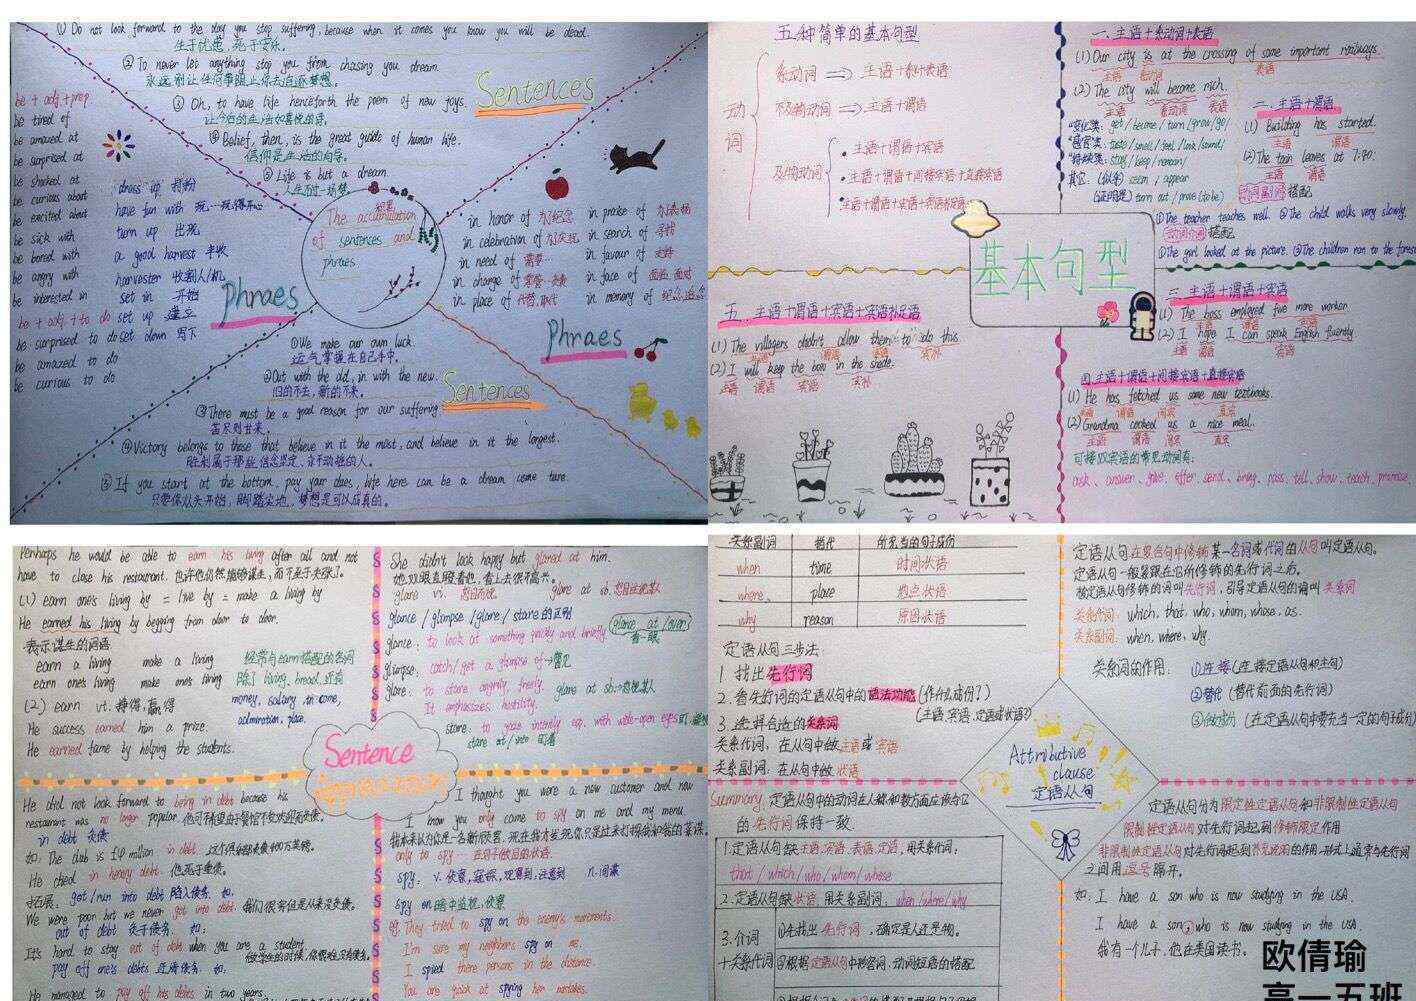 ① Do not look forward to the day you stop suffering, because when it comes you know you will be dead.
生于忧患，死于安乐。
② To never let anything stop you from chasing you dream.
永远别让任何事阻止你去追逐梦想。
③ Oh, to have life henceforth the poem of new joys.
④ Belief, then, is the great guide of human life.
信仰是生活的向导。
⑤ Life is but a dream.
人生不过一场梦。
Sentences
be + adj + prep
be tired of
be amazed at
be surprised at
be shocked at
be curious about
be excited about
be sick with
be bored with
be angry with
be interested in
be + adj + to do
be surprised to do
be amazed to do
be curious to do
dress up 打扮
have fun with
turn up 出现
a good harvest 丰收
harvester 收割人/机
set in 开始
set up 建立
set down 写下
Phraes
The accumulation
of sentences and
phraes
in honor of 为纪念
in celebration of 为庆祝
in need of 需要
in charge of
in place of 代替，取代
in praise of 为表扬
in search of 寻找
in favour of 支持
in face of 面临，面对
in memory of 纪念，追念
Phraes
① We make our own luck.
运气掌握在自己手中。
② Out with the old, in with the new.
旧的不去，新的不来。
Sentences
③ There must be a good reason for our suffering.
苦尽甘来。
④ Victory belongs to these that believe in it the most, and believe in it the longest.
胜利属于那些信念坚定、永不动摇的人。
⑤ If you start at the bottom, pay your dues, life here can be a dream come ture.
只要你从头开始，脚踏实地，梦想是可以成真的。
五种简单的基本句型
动词
系动词 ⇒ 主语+系+表语
不及物动词 ⇒ 主语+谓语
及物动词
• 主语+谓语+宾语
• 主语+谓语+间接宾语+直接宾语
• 主语+谓语+宾语+宾语补足语
一、主语+系动词+表语
(1) Our city is at the crossing of some important railways.
主语 系动词 表语
(2) The city will become rich.
主语 系动词 表语
变化类: get / become / turn / grow / go /
感官类: taste / smell / feel / look / sound /
持续类: stay / keep / remain /
其它: (似乎) seem / appear
(证明是) turn out / prove (to be)
二、主语+谓语
(1) Building has started.
主语 谓语
(2) The train leaves at 7:40.
主语 谓语
动词副词搭配
① The teacher teaches well. ② The child walks very slowly.
动词介词搭配
① The girl looked at the picture. ② The children ran to the forest
基本句型
三、主语+谓语+宾语
(1) The boss employed five more worker.
主语 谓语 宾语
(2) I hope I can speak English fluently.
主语 谓语 宾语
四、主语+谓语+间接宾语+直接宾语
(1) He has fetched us some new textbooks.
主语 谓语 间宾 直宾
(2) Grandma cooked us a nice meal.
主语 谓语 间宾 直宾
可接双宾语的常见动词有:
ask, answer, give, offer, send, bring, pass, tell, show, teach, promise,
五、主语+谓语+宾语+宾语补足语
(1) The villagers didn't allow them to do this.
主语 谓语 宾语 宾补
(2) I will keep the box in the shade.
主语 谓语 宾语 宾补
Perhaps he would be able to earn his living after all and not
have to close his restaurant.
(1) earn one's living by = live by = make a living by
He earned his living by begging from door to door.
表示谋生的词语
earn a living make a living
earn one's living make one's living
经常与earn搭配的名词
除了 living, bread, 还有
money, salary, income,
admiration, place.
(2) earn vt. 挣得，赢得
He success earned him a prize.
He earned fame by helping the students.
She didn't look happy but glared at him.
glare vi. 怒目而视 glare at sb.
glance / glimpse / glare / stare 的区别
glance: to look at something quickly and briefly
glance at / over
看一眼
glimpse: catch / get a glimpse of → 瞥见
glare: to stare angrily, freely. glare at sb.
It emphasises hostility.
stare: to gaze intently esp. with wide-open eyes
stare at / into
Sentence
He did not look forward to being in debt because his
restaurant was no longer popular.
in debt 欠债
如: The club is £4 million in debt.
He died in heavy debt. 他死于重债。
拓展: get / run into debt 陷入债务 如:
We were poor but we never got into debt. 我们很穷但是从来没欠债。
out of debt 不欠债务 如:
It's hard to stay out of debt when you are a student.
pay off one's debts 还清债务 如:
He managed to pay off his debts in two years.
I thought you were a new customer and now
I know you only came to spy on me and my menu.
only to spy
spy: v. 侦察，窥探，观察到，注意到 n. 间谍
spy on 暗中监视，侦察
例: They tried to spy on the enemy's movements.
I'm sure my neighbors spy on me.
I spied three persons in the distance.
You are quick at spying her mistakes.
关系副词 替代 所充当的句子成份
when time 时间状语
where place 地点状语
why reason 原因状语
定语从句三步法
1. 找出先行词
2. 看先行词的定语从句中的语法功能 (作什么成份？)
(主语，宾语，定语或状语？)
3. 选择合适的关系词
关系代词: 在从句中做主语或宾语
关系副词: 在从句中做状语
定语从句在复合句中修饰某一名词或代词的从句叫定语从句。
定语从句一般紧跟在它所修饰的先行词之后。
被定语从句修饰的词叫先行词，引导定语从句的词叫关系词
关系代词: which, that, who, whom, whose, as.
关系副词: when, where, why
关系词的作用: ① 连接 (连接定语从句和主句)
② 替代 (替代前面的先行词)
③ 做成份 (在定语从句中要充当一定的句子成分)
Attributive
clause
定语从句
Summary: 定语从句中的动词在人称和数方面应该与它
的先行词保持一致.
1. 定语从句缺主语，宾语，表语，定语，用关系代词:
that / which / who / whom / whose
2. 定语从句缺状语，用关系副词: when / where / why
3. 介词
+关系代词
① 先找出先行词，确定是人还是物。
② 根据定语从句中形容词，动词短语的搭配
定语从句分为限定性定语从句和非限制性定语从句
限制性定语从句对先行词起到修饰限定作用
非限制性定语从句对先行词起到补充说明的作用，形式上通常与先行词
之间用逗号隔开。
如: I have a son who is now studying in the USA.
I have a son, who is now studying in the USA.
我有一个儿子，他在美国读书。
欧倩瑜
高一五班